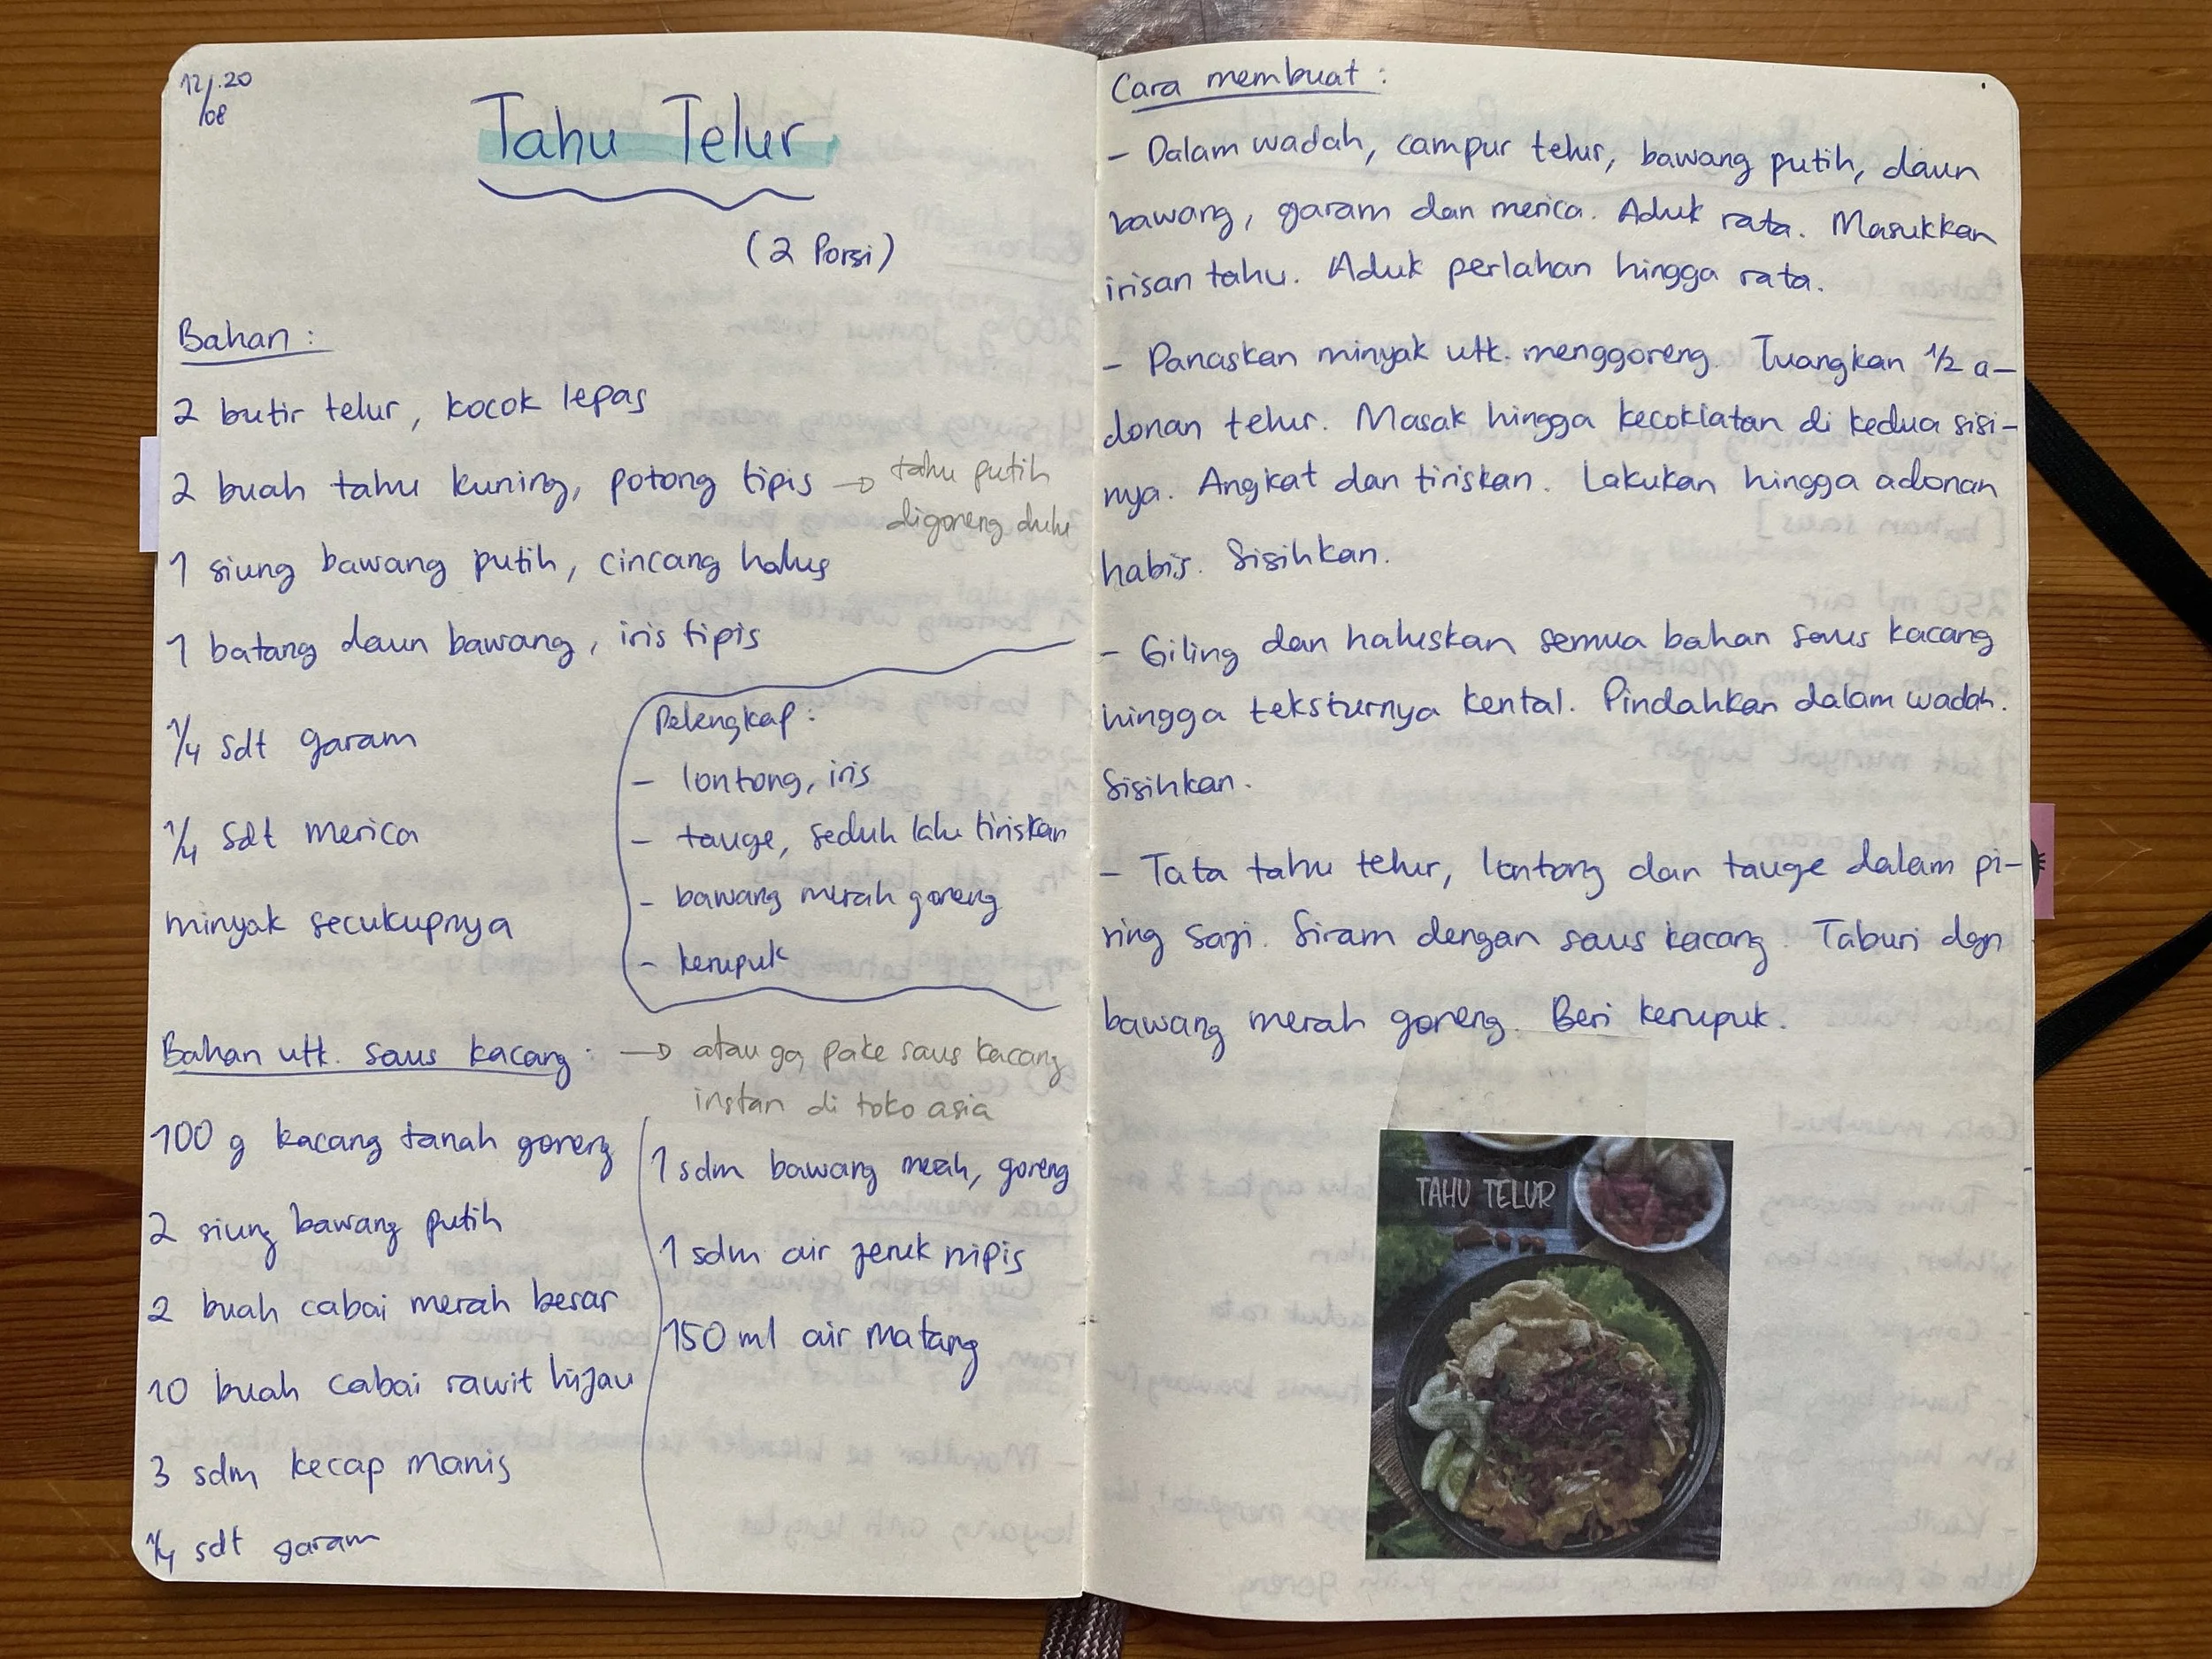 12/.20
/08
Tahu Telur
(2 Porsi)
Bahan :
2 butir telur, kocok lepas
2 buah tahu kuning, potong tipis → tahu putih
digoreng dulu
1 siung bawang putih, cincang halus
1 batang daun bawang, iris tipis
1/4 sdt garam
1/4 sdt merica
minyak secukupnya
Pelengkap :
- lontong, iris
- tauge, seduh lalu tiriskan
- bawang merah goreng
- kerupuk
Bahan utk. saus kacang : → atau ga, pake saus kacang
instan di toko asia
100 g kacang tanah goreng
2 siung bawang putih
2 buah cabai merah besar
10 buah cabai rawit hijau
3 sdm kecap manis
1/4 sdt garam
1 sdm bawang merah, goreng
1 sdm air jeruk nipis
150 ml air matang
Cara membuat :
- Dalam wadah, campur telur, bawang putih, daun
bawang, garam dan merica. Aduk rata. Masukkan
irisan tahu. Aduk perlahan hingga rata.
- Panaskan minyak utk. menggoreng. Tuangkan 1/2 a-
donan telur. Masak hingga kecoklatan di kedua sisi-
nya. Angkat dan tiriskan. Lakukan hingga adonan
habis. Sisihkan.
- Giling dan haluskan semua bahan saus kacang
hingga teksturnya kental. Pindahkan dalam wadah.
Sisihkan.
- Tata tahu telur, lontong dan tauge dalam pi-
ring saji. Siram dengan saus kacang. Taburi dgn
bawang merah goreng. Beri kerupuk.
TAHU TELUR